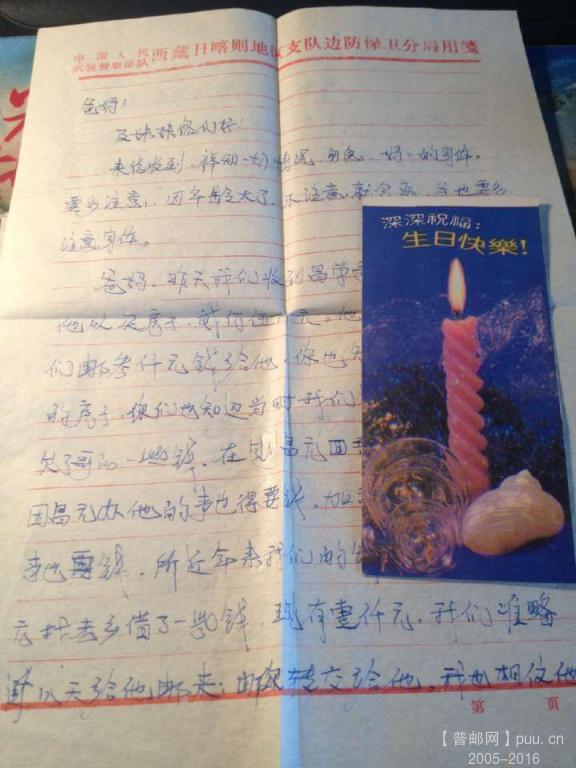 中国人民
武装警察部队 西藏日喀则地区支队边防保卫分局用笺
爸妈：
及妹妹你们好！
来信收到，详知一切情况，
要多注意，因年龄大了，不注意，就会病，爸也要多
注意身体。
爸妈，昨天我们收到昌学
他以买房子，
们邮叁仟元钱给他，你也知
的房子，你们也知道当时我们
欠了哥的一些钱，在
因昌元办他的事也得要钱，
事也要钱，所近年来我们的
元找老乡借了一些钱，现有壹仟元，我们准备
天给他邮来，转交给他，我也相信他
第 页
深深祝福：
生日快樂！
【普邮网】puu.cn
2005-2016